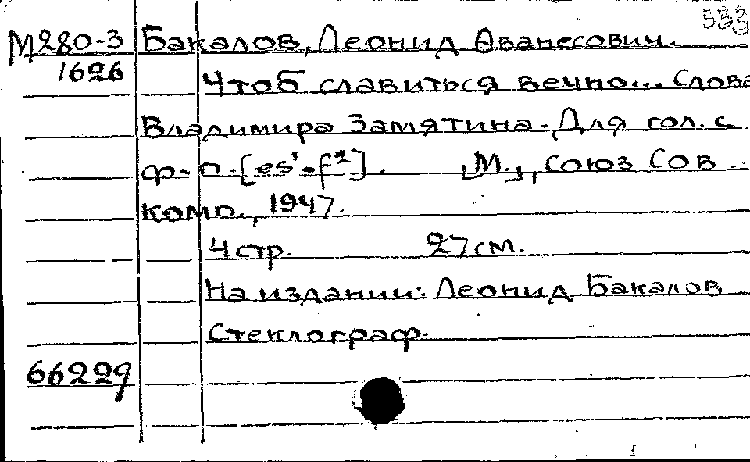 533
М280-3 Бакалов, Леонид Аванесович.
1626 Чтоб славиться вечно... Слова
Владимира Замятина. Для гол. с
ф-п. [es'-f²]. [М.], Союз Сов
комп., 1947.
4 стр. 27 см.
На издании: Леонид Бакалов
Стеклограф.
66229